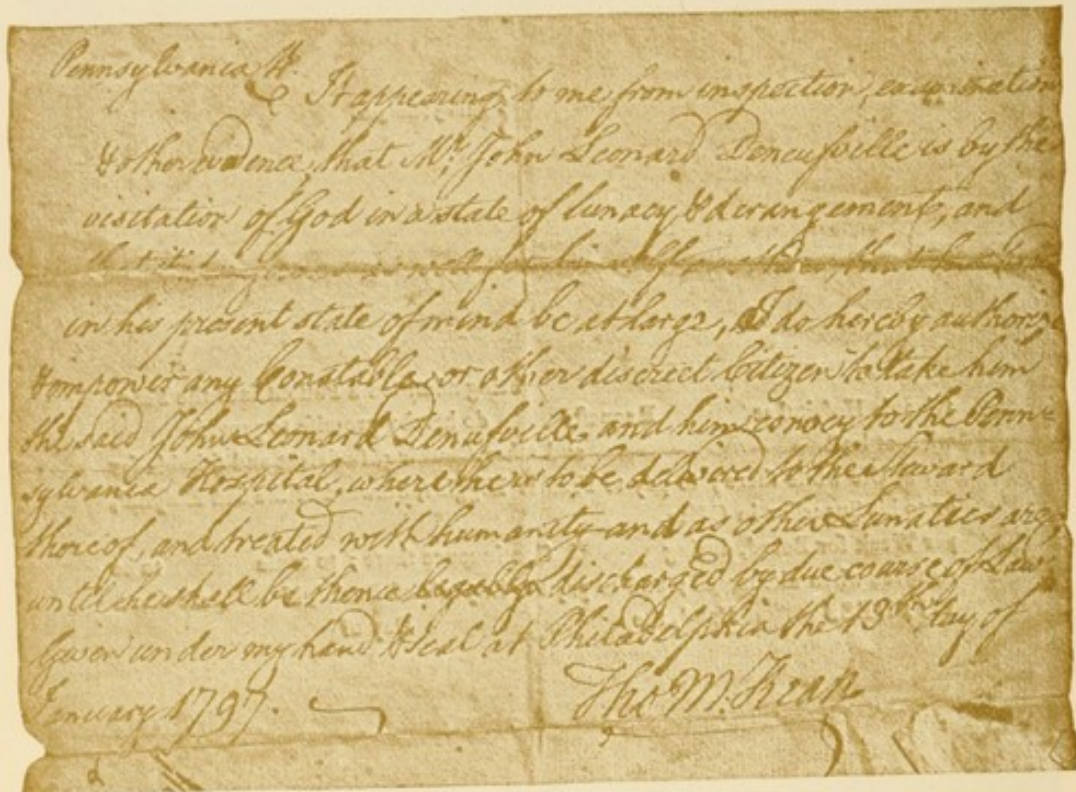 Pennsylvania ss.
It appearing to me from inspection, examination
& other evidence, that Mr. John Leonard Deneufville is by the
visitation of God in a state of lunacy & derangement, and
that it is as well for himself that he
in his present state of mind be at large, I do hereby authorize
& empower any Constable or other discreet Citizen to take him
the said John Leonard Deneufville and him convey to the Penn-
sylvania Hospital, where he is to be delivered to the Steward
thereof, and treated with humanity and as other Lunatics are,
until he shall be thence legally discharged by due course of Law.
Given under my hand & seal at Philadelphia the 13th day of
January 1797.
Tho M:Kean